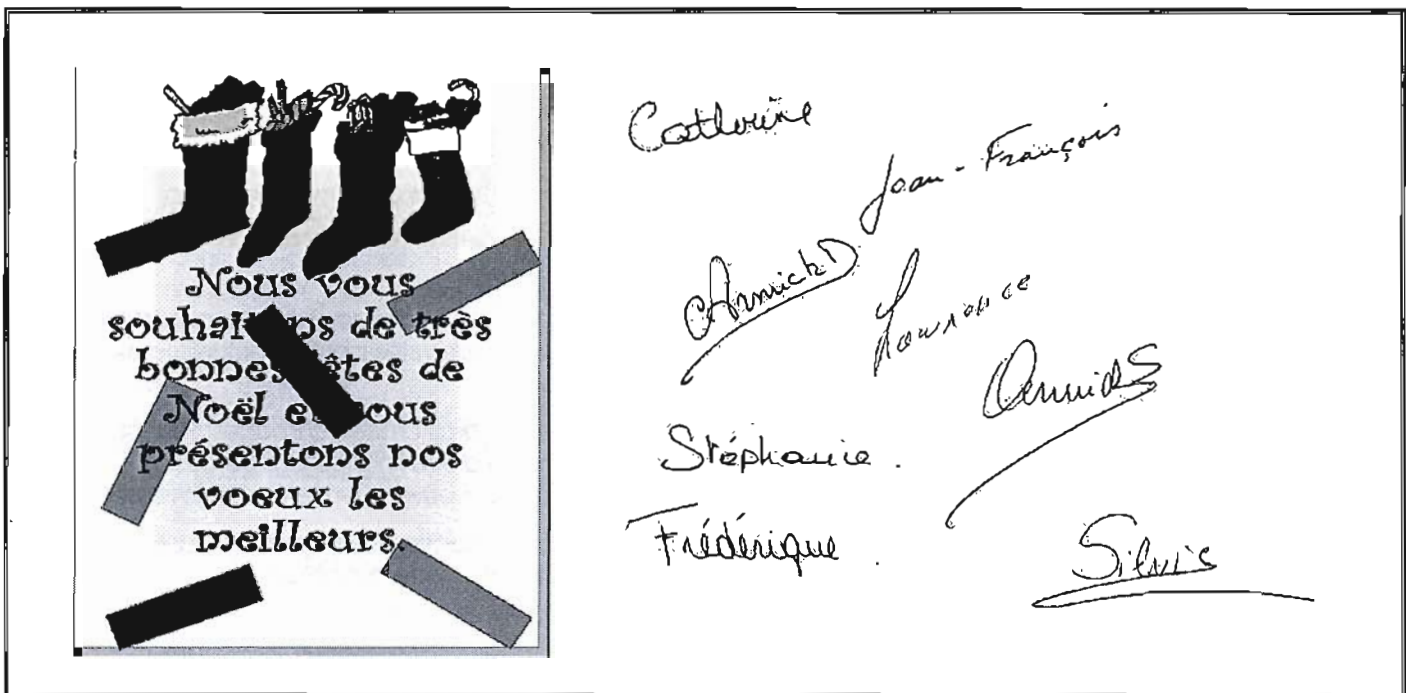 Nous vous
souhaitons de très
bonnes fêtes de
Noël et vous
présentons nos
voeux les
meilleurs.
Catherine
Jean-François
Annick D
Laurence
Annick S
Stéphanie.
Frédérique.
Silvie